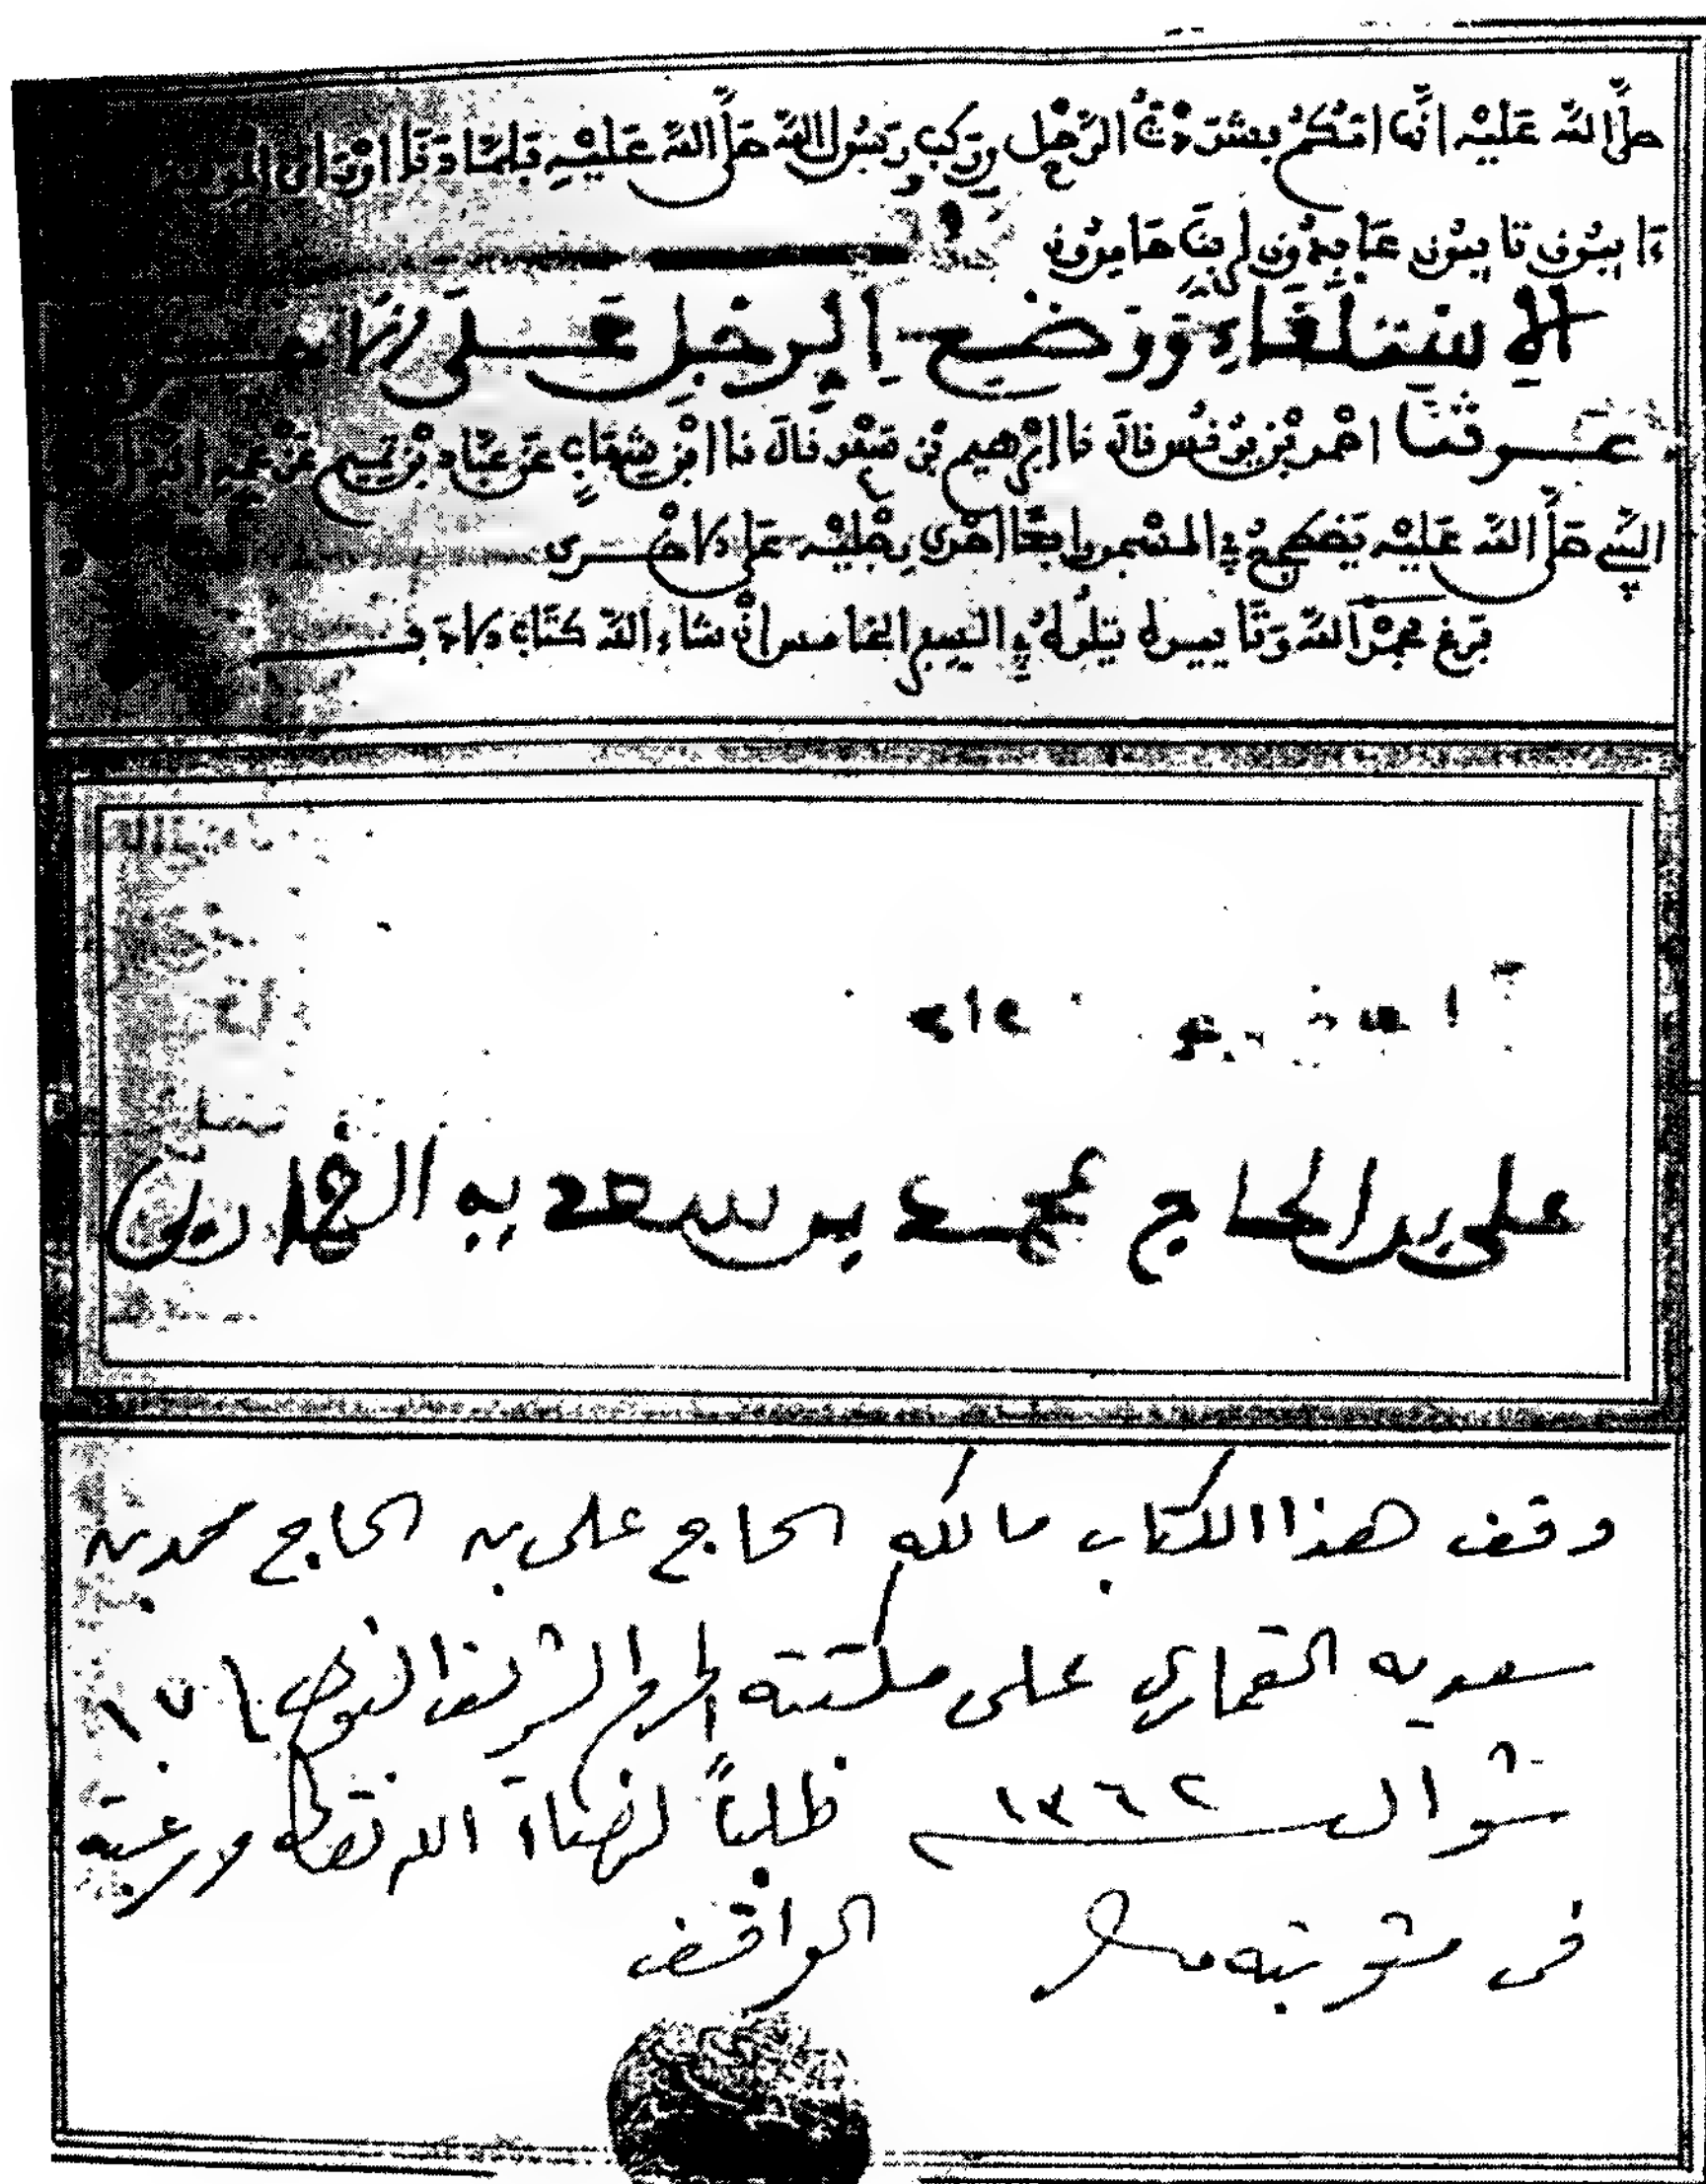 صلى الله عليه انها امكم فشدذت الرحل وركب رسول الله صلى الله عليه فلما دنا او راى المدينة
ءاييون تاييون عابدون لربنا حامدون
الاستلقاء ووضع الرجل على الاخرى
حدثنا احمد بن يونس قال نا ابرهيم بن سعد قال نا ابن شهاب عن عباد بن تميم عن عمه انه
النبي صلى الله عليه يضطجع في المسجد رافعا احدى رجليه على الاخرى
فرغ بحمد الله وتاييده يتلوه في السفر الخامس ان شاء الله كتاب الادب
علي بن الحاج محمد بن سعديه القماري
وقف هذا الكتاب مالكه الحاج على بن الحاج محمد بن
سعديه القماري على مكتبة الحرم الشريف النبوي
شوال ١٣٦٢ طلباً لمرضاة الله تعالى ورغبة
فى مثوبته
الواقف